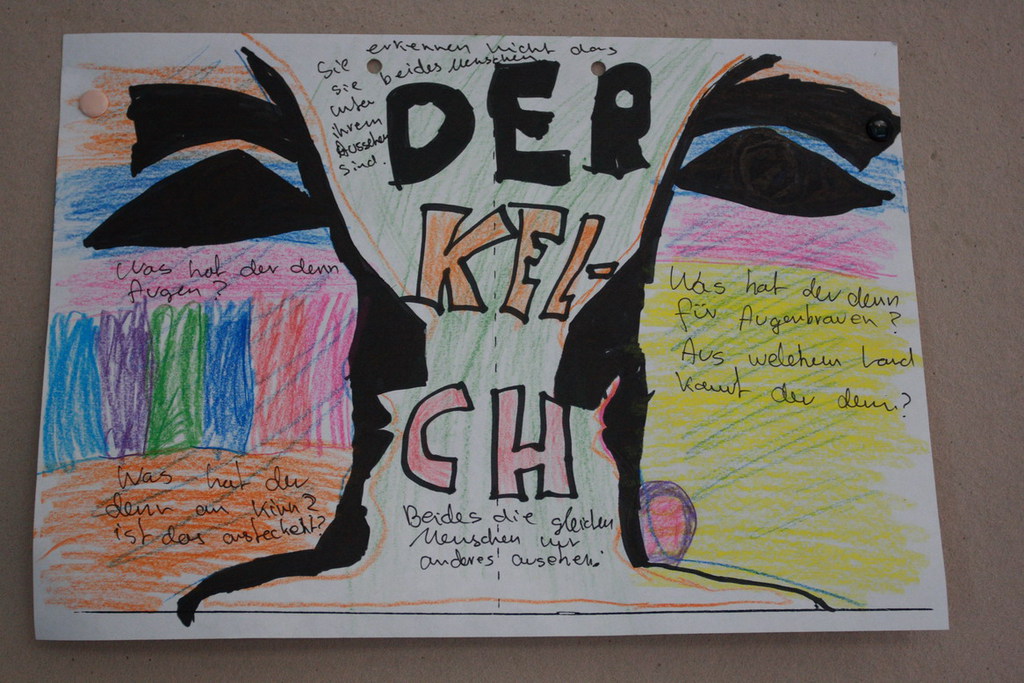 Sie erkennen nicht das
sie beides Menschen
unter
ihrem
Aussehen
sind.
DER
KEL-
CH
Was hat der denn
Augen?
Was hat der
denn am Kinn?
ist das ansteckent?
Was hat der denn
für Augenbrauen?
Aus welchem Land
kommt der denn?
Beides die gleichen
Menschen nur
anderes ausehen.